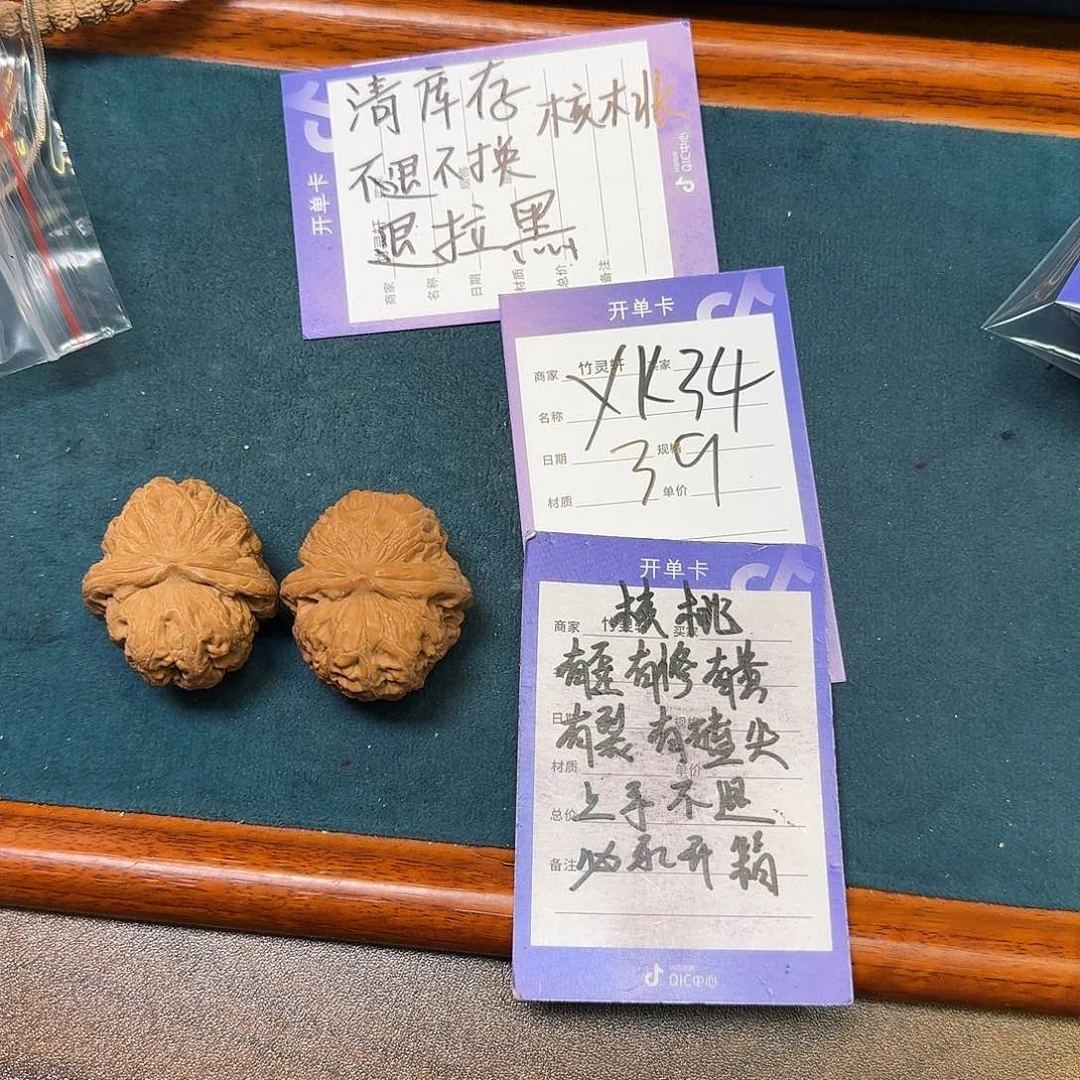 清库存 核桃
不退不换
退拉黑
开单卡
商家
名称
日期
材质
总价
备注
QIC中心
开单卡
商家 竹灵轩 买家
YK34
名称
39
日期 规格
材质 单价
开单卡
核桃
商家 买家
有歪有修有黄
有裂有磕尖
日期 规格
材质 单价
上手不退
总价
备注
开箱
QIC中心